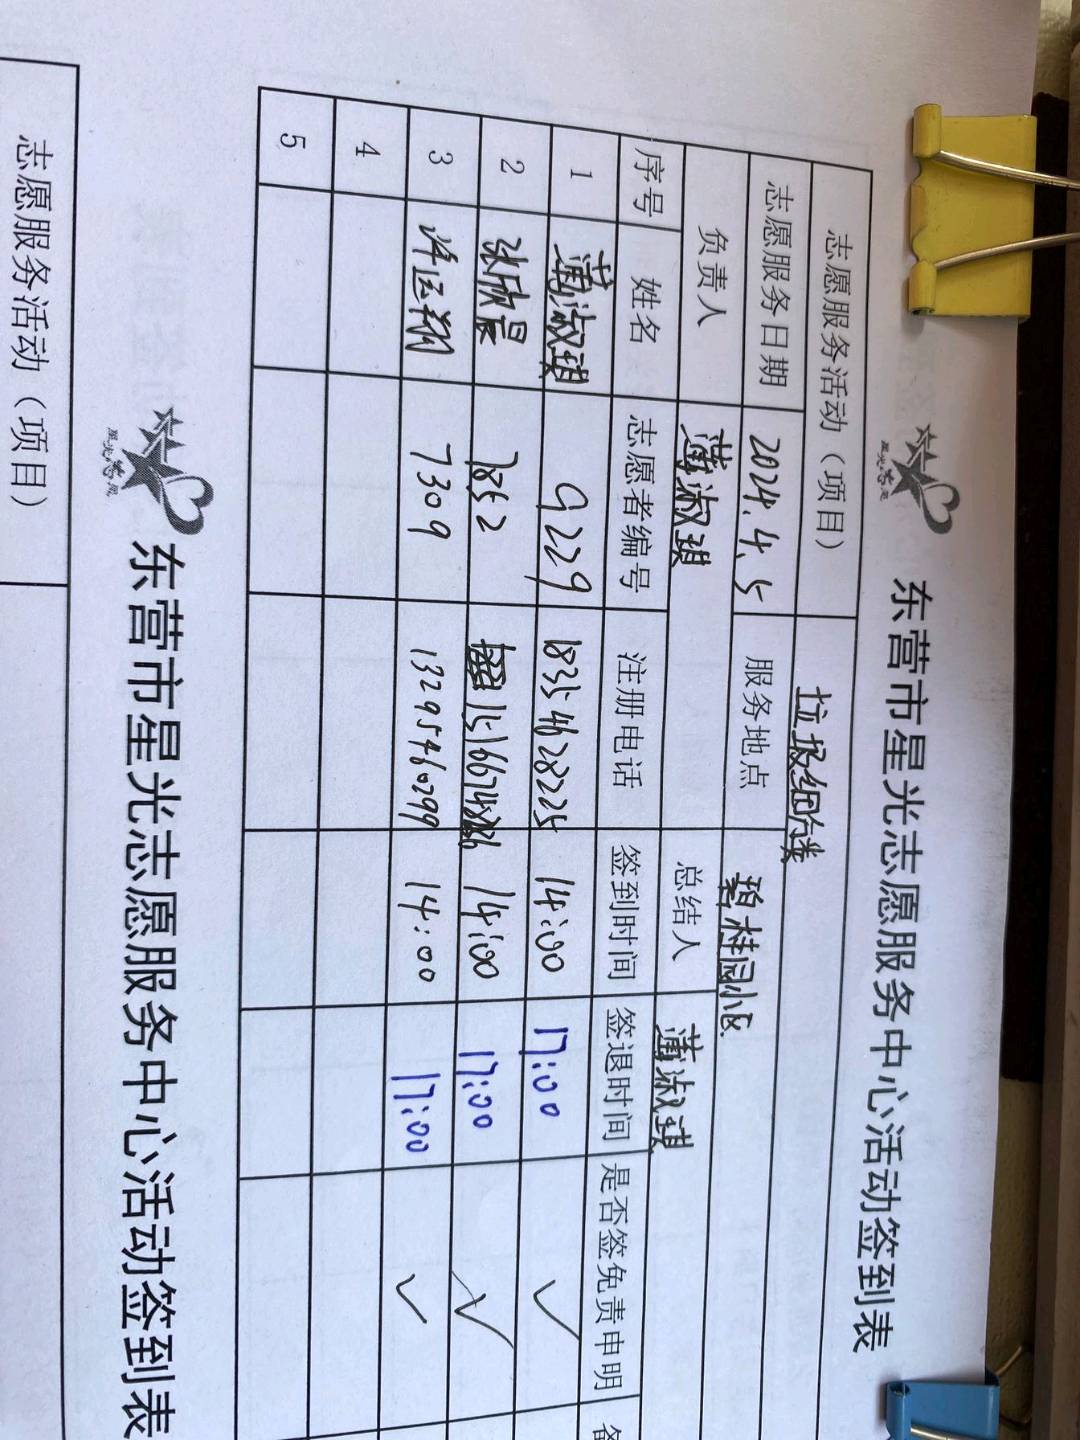 东营市星光志愿服务中心活动签到表
志愿服务活动（项目） 垃圾细分类
志愿服务日期 2024.4.5 服务地点 碧桂园小区
负责人 蒲淑琪 总结人 蒲淑琪
序号 姓名 志愿者编号 注册电话 签到时间 签退时间 是否签免责申明
1 蒲淑琪 9229 18354628225 14:00 17:00 ✓
2 张欣晨 7852 14:00 17:00 ✓
3 许运翔 7309 13295460299 14:00 17:00 ✓
4
5
东营市星光志愿服务中心活动签到表
志愿服务活动（项目）